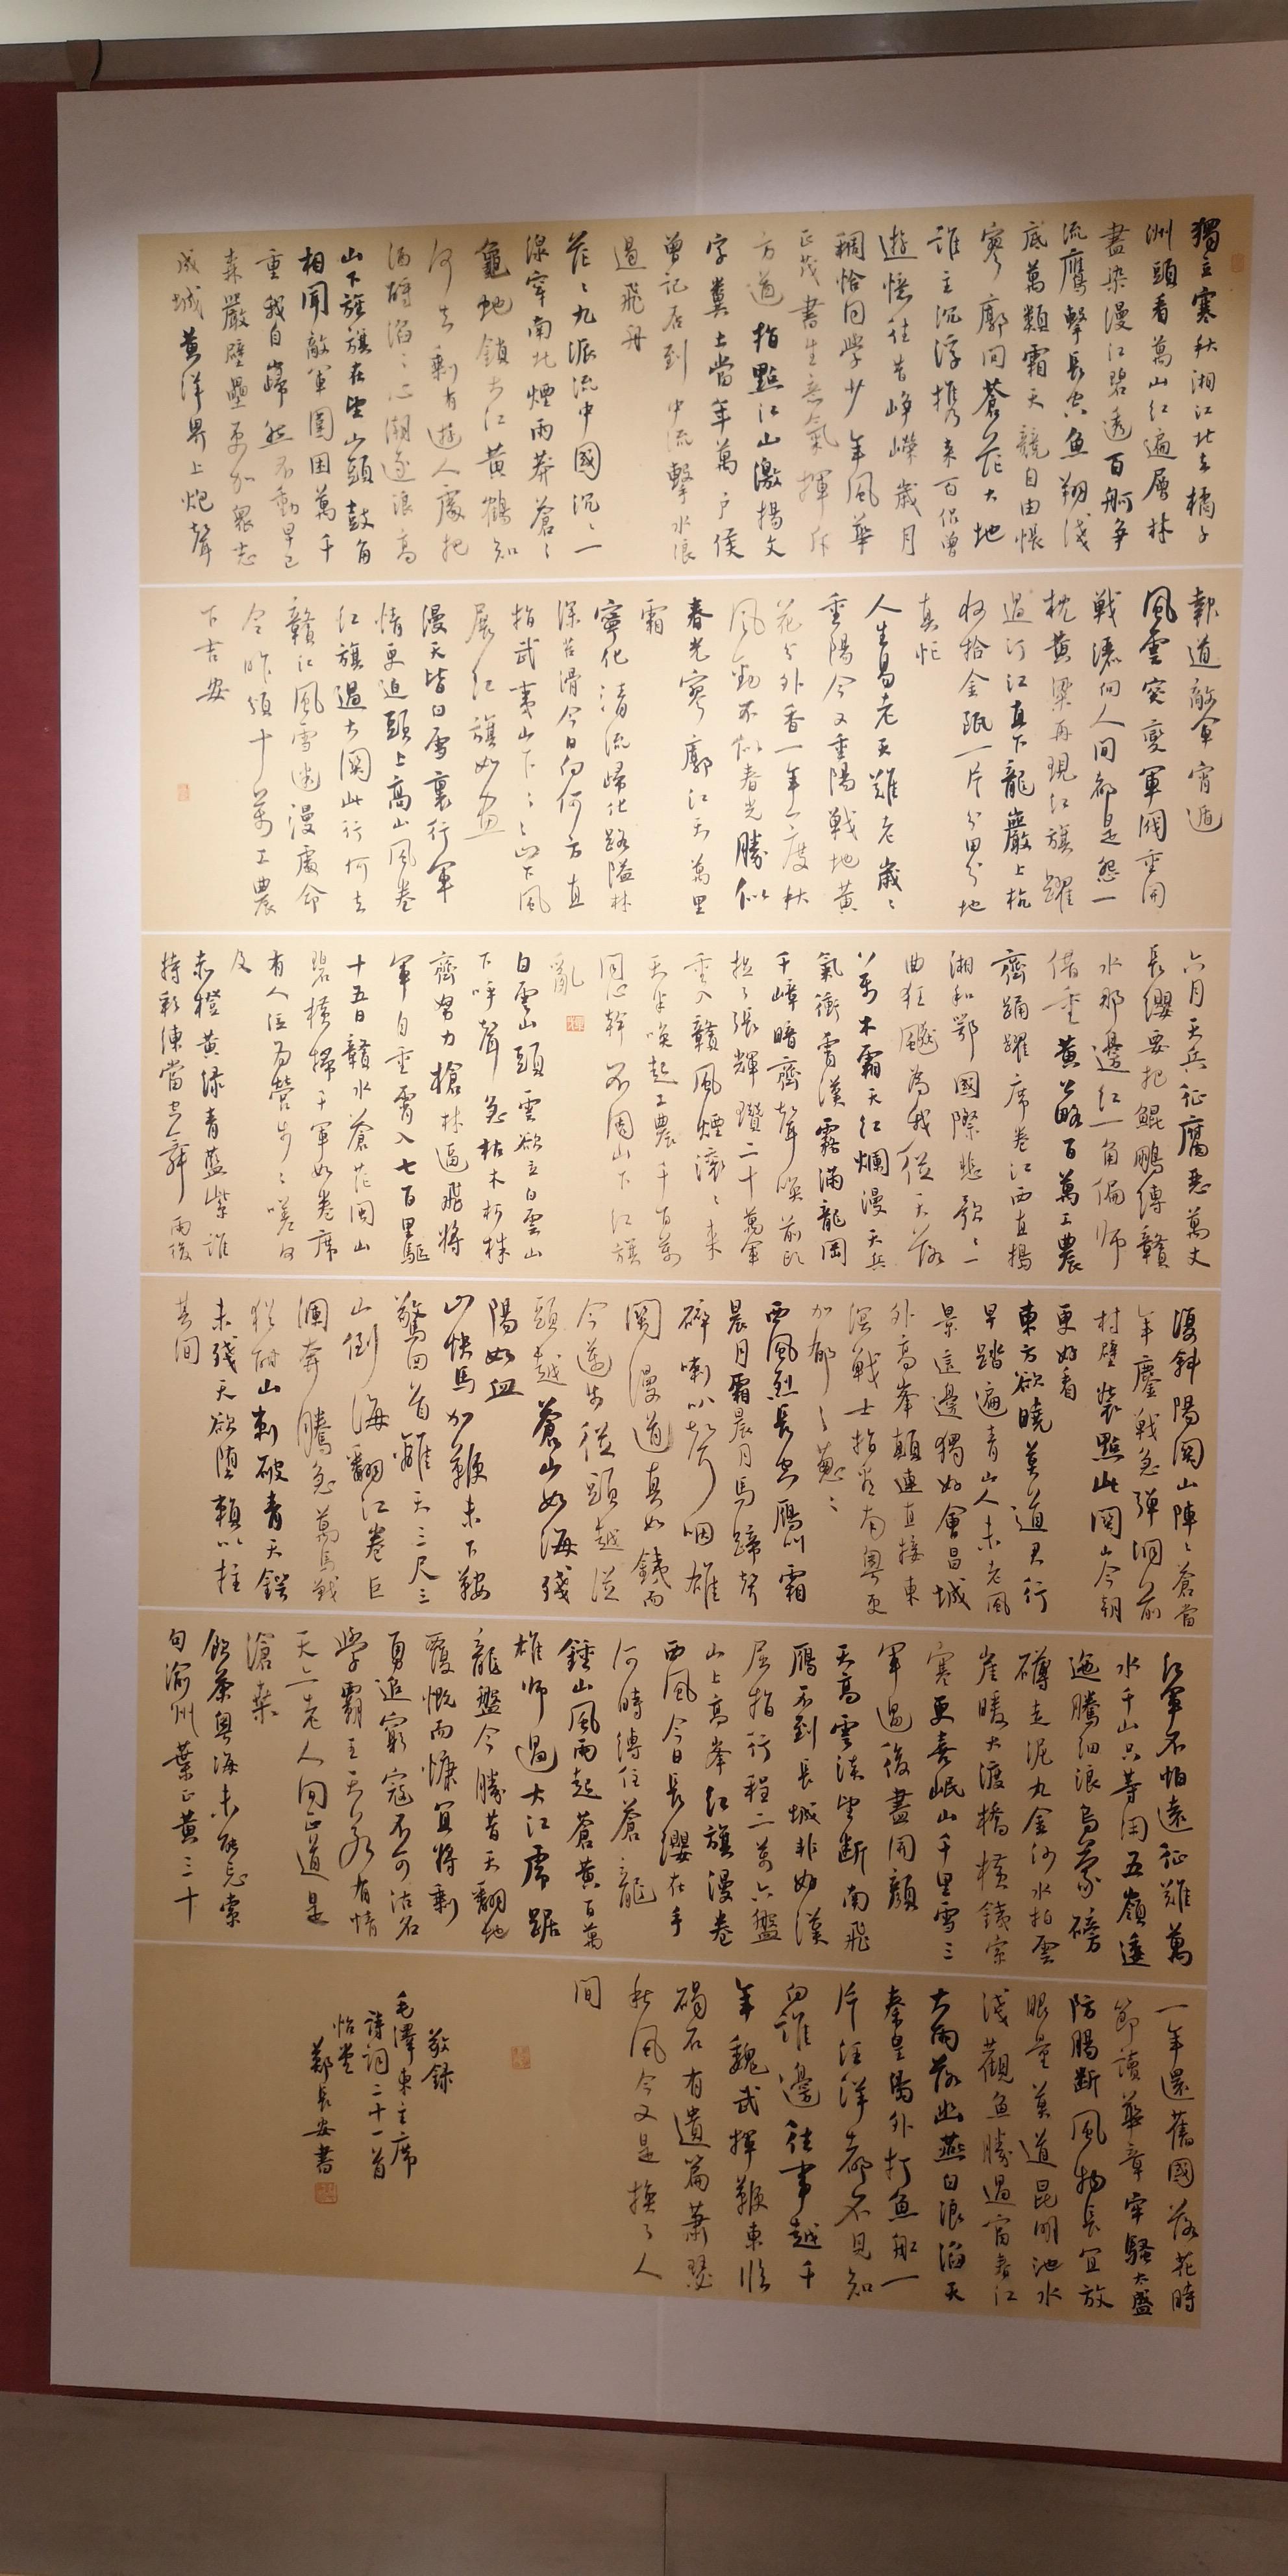 獨立寒秋湘江北去橘子
洲頭看萬山紅遍層林
盡染漫江碧透百舸爭
流鷹擊長空魚翔淺
底萬類霜天競自由悵
寥廓問蒼茫大地
誰主沉浮携來百侶曾
遊憶往昔崢嶸歲月
稠恰同學少年風華
正茂書生意氣揮斥
方遒指點江山激揚文
字糞土當年萬户侯
曾記否到中流擊水浪
遏飛舟
茫〻九派流中國沉〻一
線穿南北煙雨莽蒼〻
龜蛇鎖大江黃鶴知
何去剩有遊人處把
酒酹滔〻心潮逐浪高
山下旌旗在望山頭鼓角
相聞敵軍圍困萬千
重我自巋然不動早已
森嚴壁壘更加衆志
成城黃洋界上炮聲
報道敵軍宵遁
風雲突變軍閥重開
戰灑向人間都是怨一
枕黃粱再現紅旗躍
過汀江直下龍巖上杭
收拾金甌一片分田分地
真忙
人生易老天難老歲〻
重陽今又重陽戰地黃
花分外香一年一度秋
風勁不似春光勝似
春光寥廓江天萬里
霜
寧化清流歸化路隘林
深苔滑今日向何方直
指武夷山下〻〻山下風
展紅旗如畫
漫天皆白雪裏行軍
情更迫頭上高山風卷
紅旗過大關此行何去
贛江風雪迷漫處命
令昨頒十萬工農
下吉安
六月天兵征腐惡萬丈
長纓要把鯤鵬縛贛
水那邊紅一角偏師
借重黃公略百萬工農
齊踴躍席卷江西直搗
湘和鄂國際悲歌〻一
曲狂飈為我從天落
萬木霜天紅爛漫天兵
氣衝霄漢霧滿龍岡
千嶂暗齊聲喚前頭
捉了張輝瓚二十萬軍
重入贛風煙滾〻來
天半喚起工農千百萬
同心幹不周山下紅旗
亂
白雲山頭雲欲立白雲山
下呼聲急枯木朽株
齊努力槍林逼飛將
軍自重霄入七百里驅
十五日贛水蒼茫閩山
碧橫掃千軍如卷席
有人泣為營步〻嗟何
及
赤橙黃綠青藍紫誰
持彩練當空舞雨後
復斜陽關山陣〻蒼當
年鏖戰急彈洞前
村壁裝點此關山今朝
更好看
東方欲曉莫道君行
早踏遍青山人未老風
景這邊獨好會昌城
外高峯顛連直接東
溟戰士指看南粵更
加郁〻蔥〻
西風烈長空雁叫霜
晨月霜晨月馬蹄聲
碎喇叭聲咽雄
關漫道真如鐵而
今邁步從頭越從
頭越蒼山如海殘
陽如血
山快馬加鞭未下鞍
驚回首離天三尺三
山倒海翻江卷巨
瀾奔騰急萬馬戰
猶酣山刺破青天鍔
未殘天欲墮賴以拄
其間
紅軍不怕遠征難萬
水千山只等閒五嶺逶
迤騰細浪烏蒙磅
礴走泥丸金沙水拍雲
崖暖大渡橋橫鐵索
寒更喜岷山千里雪三
軍過後盡開顏
天高雲淡望斷南飛
雁不到長城非好漢
屈指行程二萬六盤
山上高峯紅旗漫卷
西風今日長纓在手
何時縛住蒼龍
鍾山風雨起蒼黃百萬
雄師過大江虎踞
龍盤今勝昔天翻地
覆慨而慷宜將剩
勇追窮寇不可沽名
學霸王天若有情
天亦老人間正道是
滄桑
飲茶粵海未能忘索
句渝州葉正黃三十
一年還舊國落花時
節讀華章牢騷太盛
防腸斷風物長宜放
眼量莫道昆明池水
淺觀魚勝過富春江
大雨落幽燕白浪滔天
秦皇島外打魚船一
片汪洋都不見知
向誰邊往事越千
年魏武揮鞭東臨
碣石有遺篇蕭瑟
秋風今又是換了人
間
敬錄
毛澤東主席
詩詞二十一首
怡堂
鄭長安書